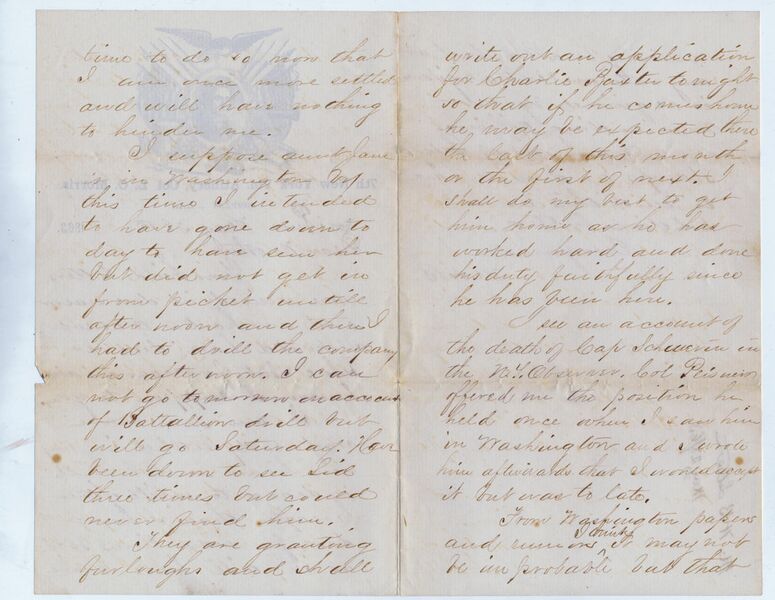 time to do so now that
I am once more settled
and will have nothing
to hinder me.
I suppose aunt Jane
is in Washington by
this time I intended
to have gone down to
day to have seen her
but did not get in
from picket untill
after noon and then I
had to drill the company
this afternoon. I can
not go tomorrow on account
of Battallion drill but
will go Saturday. Have
been down to see Sid
three times but could
never find him.
They are granting
furloughs and shall
write out an application
for Charlie Baxter tonight
so that if he comes home
he may be expected there
the last of this month
or the first of next. I
shall do my best to get
him home as he has
worked hard and done
his duty faithfully since
he has been here.
I see an account of
the death of Cap Schwerin in
the N.Y. Observer. Col Peissner
offered me the position he
held once when I saw him
in Washington and I wrote
him afterwards that I would accept
it but was to late.
From Washington papers
and rumors, I think it may not
be improbable but that